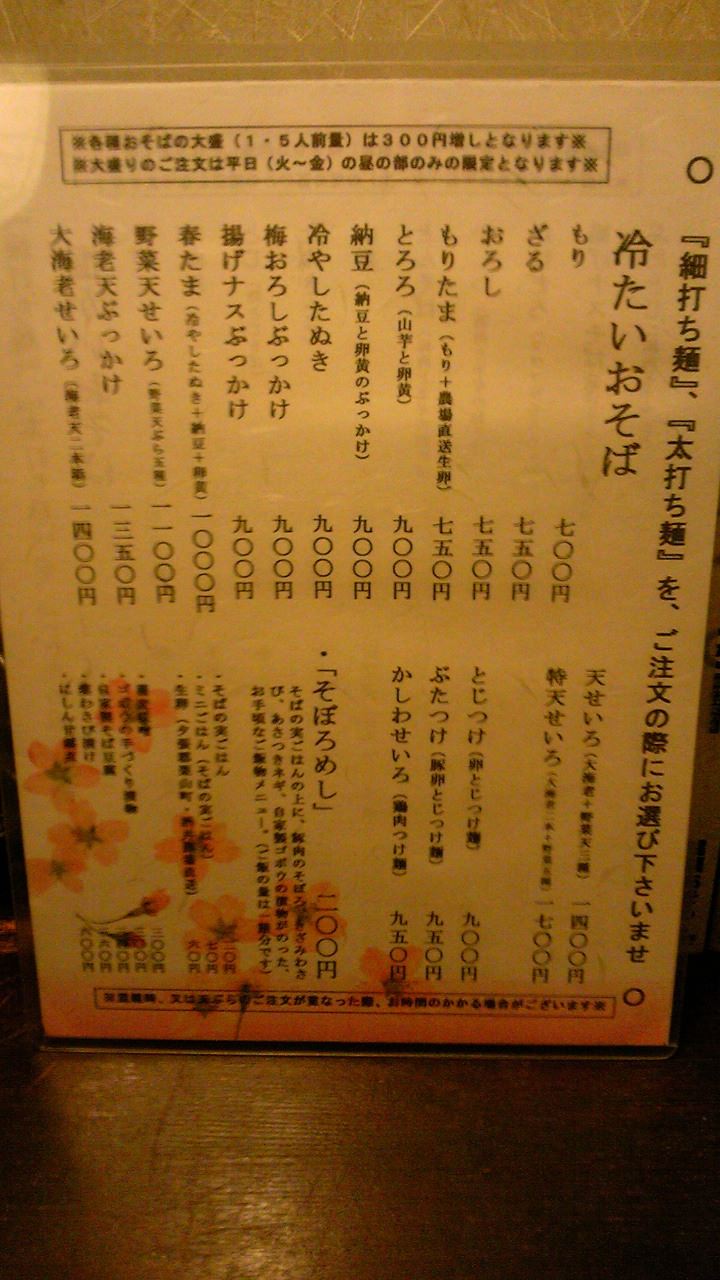 ○『細打ち麺』、『太打ち麺』を、ご注文の際にお選び下さいませ○
※各種おそばの大盛（１・５人前量）は３００円増しとなります※
※大盛りのご注文は平日（火～金）の昼の部のみの限定となります※
冷たいおそば
もり 七〇〇円
ざる 七五〇円
おろし 七五〇円
もりたま（もり＋農場直送生卵） 七五〇円
とろろ（山芋と卵黄） 九〇〇円
納豆（納豆と卵黄のぶっかけ） 九〇〇円
冷やしたぬき 九〇〇円
梅おろしぶっかけ 九〇〇円
揚げナスぶっかけ 九〇〇円
春たま（冷やしたぬき＋納豆＋卵黄） 一〇〇〇円
野菜天せいろ（野菜天ぷら五種） 一一〇〇円
海老天ぶっかけ 一三五〇円
大海老せいろ（海老天二本築） 一四〇〇円
天せいろ（大海老＋野菜天三種） 一四〇〇円
特天せいろ（大海老二本＋野菜五種） 一七〇〇円
とじつけ（卵とじつけ麺） 九〇〇円
ぶたつけ（豚卵とじつけ麺） 九五〇円
かしわせいろ（鶏肉つけ麺） 九五〇円
・「そぼろめし」 二〇〇円
そばの実ごはんの上に、豚肉のそぼろ、きざみわさ
び、あさつきネギ、自家製ゴボウの漬物がのった、
お手頃なご飯物メニュー。（ご飯の量は一膳分です）
・そばの実ごはん
・ミニごはん（そばの実ごはん）
・生卵（夕張郡栗山町・
ゴボウの手づくり漬物
・自家製そば豆腐
わさび漬け
・にしん甘露煮
※混雑時、又は天ぷらのご注文が重なった際、お時間のかかる場合がございます※